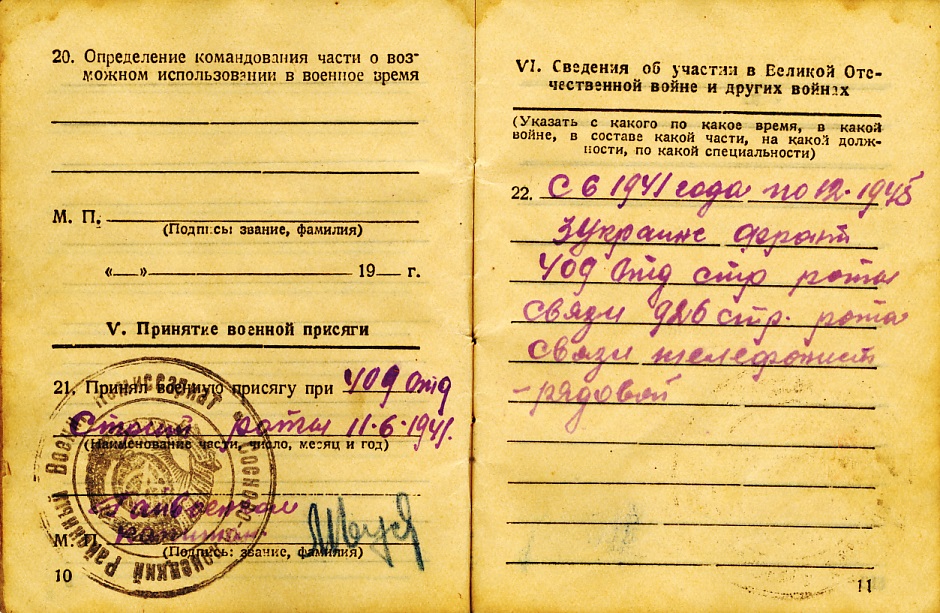 20. Определение командования части о воз-
можном использовании в военное время
М. П.
(Подпись: звание, фамилия)
«    »    19    г.
V. Принятие военной присяги
21. Принял военную присягу при 409 отд
Стрелк роты 11.6.1941.
(Наименование части, число, месяц и год)
М. П.
(Подпись: звание, фамилия)
10
VI. Сведения об участии в Великой Оте-
чественной войне и других войнах
(Указать с какого по какое время, в какой
войне, в составе какой части, на какой долж-
ности, по какой специальности)
22. С 6 1941 года по 12. 1945
3 Украине фронт
409 отд стр роты
связи 926 стр. рота
связи телефонист
- рядовой
11